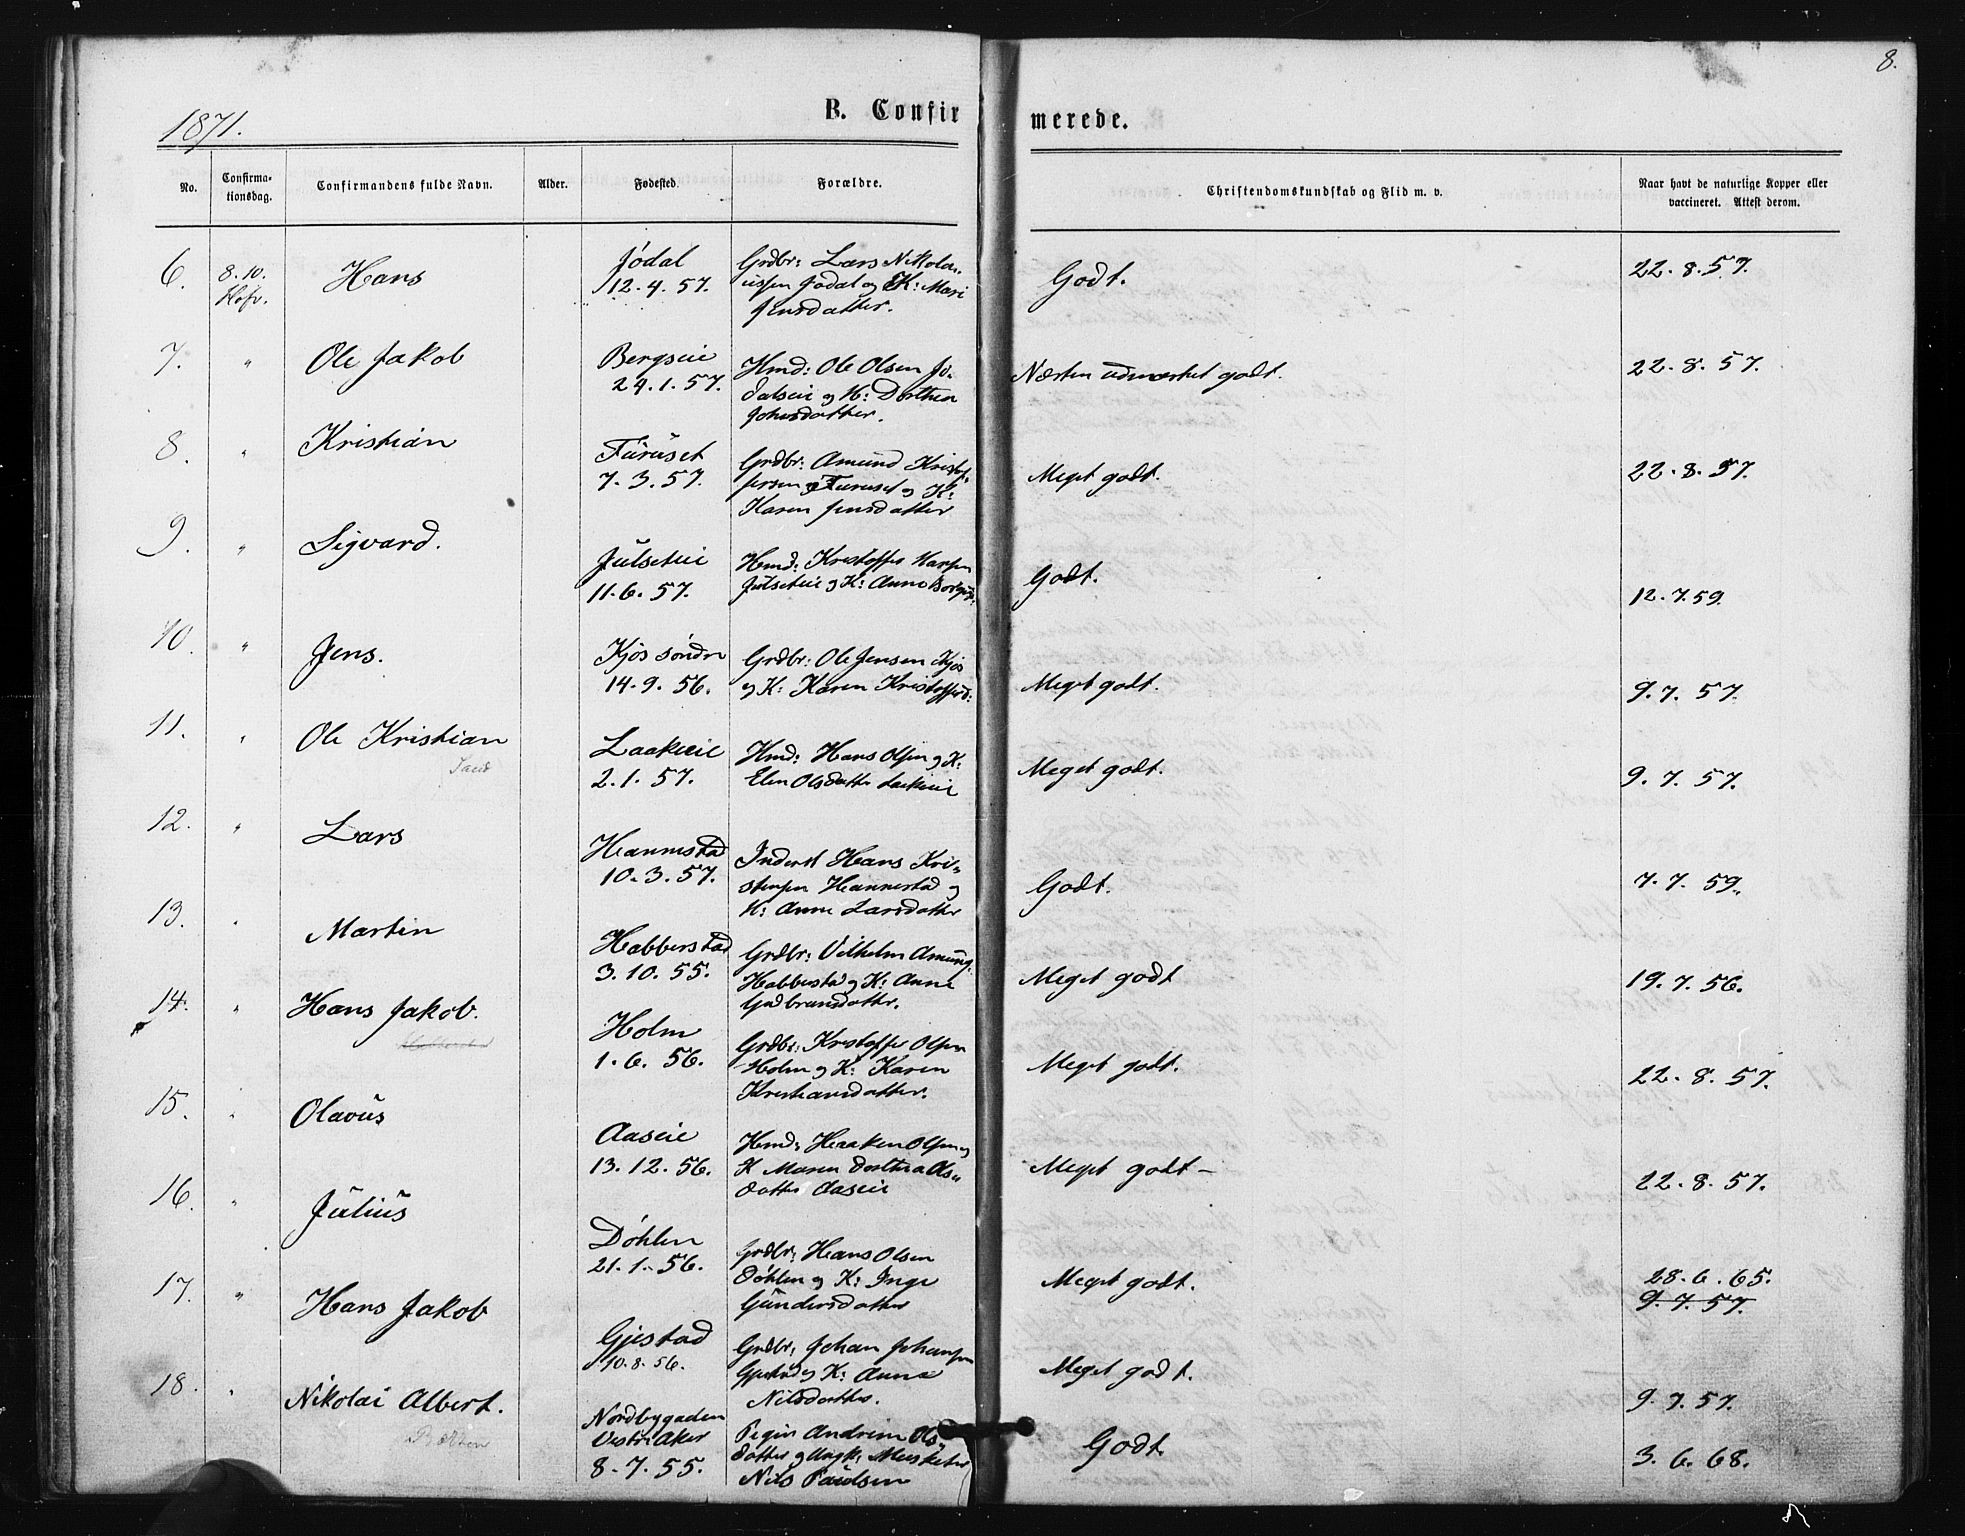 8.
1871.
B. Confirmerede.
No.
Confirmationsdag.
Confirmandens fulde Navn.
Alder.
Fødested.
Forældre.
Christendomskundskab og Flid m. v.
Naar havt de naturlige Kopper eller vaccineret. Attest derom.
6.
8.10.
Hofv.
Hans
Jødal
12.4.57.
Grdbr: Lars Nikola-
issen Jødal og K: Mari
Jensdatter.
Godt.
22.8.57.
7.
"
Ole Jakob
Bergseie
24.1.57.
Hmd: Ole Olsen Jø-
dalseie og K: Dorthea
Johnsdatter.
Næsten udmærket godt.
22.8.57.
8.
"
Kristian
Furuset
7.3.57.
Grdbr: Amund Kristof-
fersen Furuset og K:
Karen Jensdatter
Meget godt.
22.8.57.
9.
"
Sigvard.
Julseteie
11.6.57.
Hmd: Kristoffer Hansen
Julseteie og K: Anne
Godt.
12.7.59.
10.
"
Jens.
Kjos søndre
14.9.56.
Grdbr: Ole Jensen Kjos
og K: Karen Kristoffersd:
Meget godt.
9.7.57.
11.
"
Ole Kristian
Laakeeie
2.1.57.
Hmd: Hans Olsen og K:
Elen Olsdatter Laakeeie
Meget godt.
9.7.57.
12.
"
Lars
Hannestad
10.3.57.
Inderst Hans Kri-
stensen Hannestad og
K: Anne Larsdatter
Godt.
7.7.59.
13.
"
Martin
Habberstad
3.10.55.
Grdbr: Vilhelm Amunds.
Habberstad og K: Anne
Gudbransdatter.
Meget godt
19.7.56.
14.
"
Hans Jakob.
Holm
1.6.56.
Grdbr: Kristoffer Olsen
Holm og K: Karen
Kristiansdatter.
Meget godt.
22.8.57.
15.
"
Olavus
Aaseie
13.12.56.
Hmd: Haaken Olsen og
K Maren Dorthea Ols-
datter Aaseie
Meget godt –
22.8.57.
16.
"
Julius
Døhlen
21.1.56.
Grdbr: Hans Olsen
Døhlen og K: Inge
Gundersdatter
Meget godt.
28.6.65.
9.7.57.
17.
"
Hans Jakob
Gjestad
10.8.56.
Grdbr: Johan Johansen
Gjestad og K: Anne
Nilsdatter.
Meget godt.
9.7.57.
18.
"
Nikolai Albert.
Nordbygaden
Vestre Aker
8.7.55.
Pigen Andrine Ols-
datter og Ungk: Musketer
Nils Paulsen
Godt.
3.6.68.